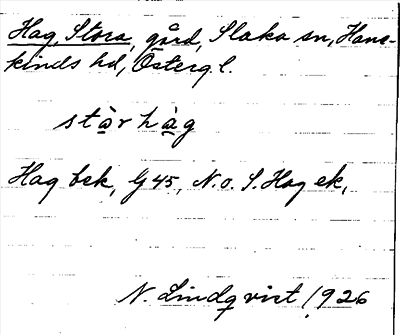 Hag, Stora, gård, Slaka sn, Hane-
kinds hd, Östergl.
stàr hàg
Hag bek, G 45, N. o. S. Hag ek,
N. Lindqvist 1926